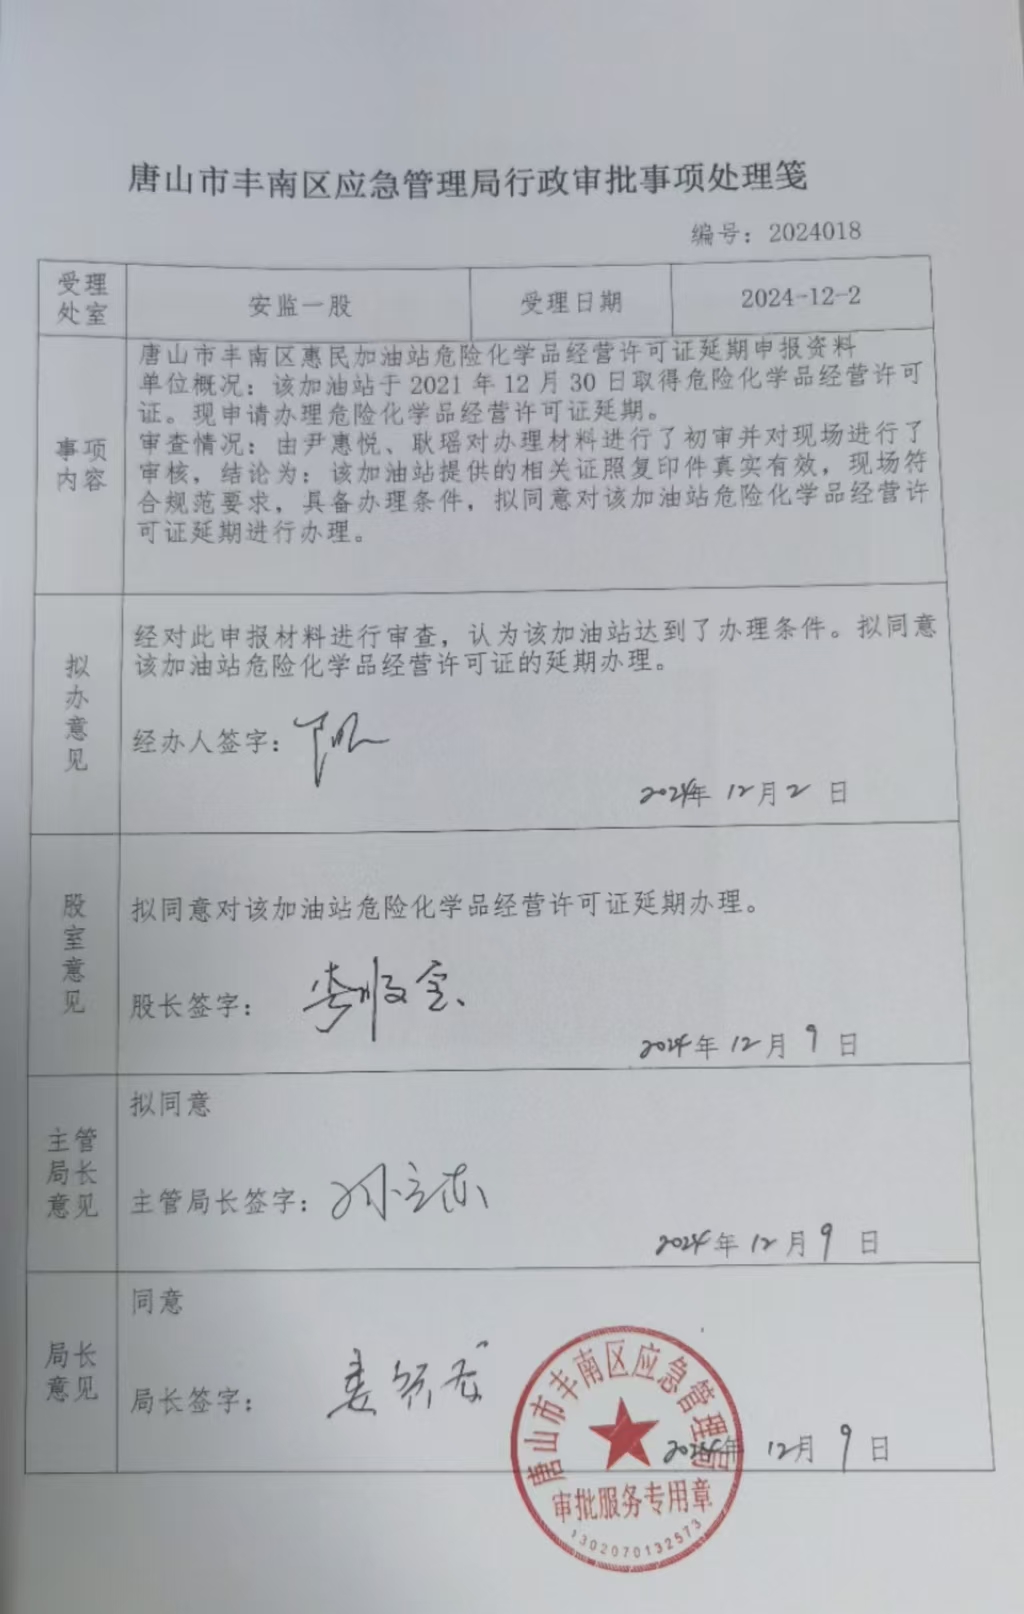 唐山市丰南区应急管理局行政审批事项处理笺
编号：2024018
受理处室
安监一股
受理日期
2024-12-2
事项内容
唐山市丰南区惠民加油站危险化学品经营许可证延期申报资料
单位概况：该加油站于 2021 年 12 月 30 日取得危险化学品经营许可
证。现申请办理危险化学品经营许可证延期。
审查情况：由尹惠悦、耿瑶对办理材料进行了初审并对现场进行了
审核，结论为：该加油站提供的相关证照复印件真实有效，现场符
合规范要求，具备办理条件，拟同意对该加油站危险化学品经营许
可证延期进行办理。
拟办意见
经对此申报材料进行审查，认为该加油站达到了办理条件。拟同意
该加油站危险化学品经营许可证的延期办理。
经办人签字：
2024年 12月 2 日
股室意见
拟同意对该加油站危险化学品经营许可证延期办理。
股长签字：
2024年 12月 9 日
主管局长意见
拟同意
主管局长签字：孙立东
2024年 12月 9 日
局长意见
同意
局长签字：
2024年 12月 9 日
唐山市丰南区应急管理局
审批服务专用章
1302070132573